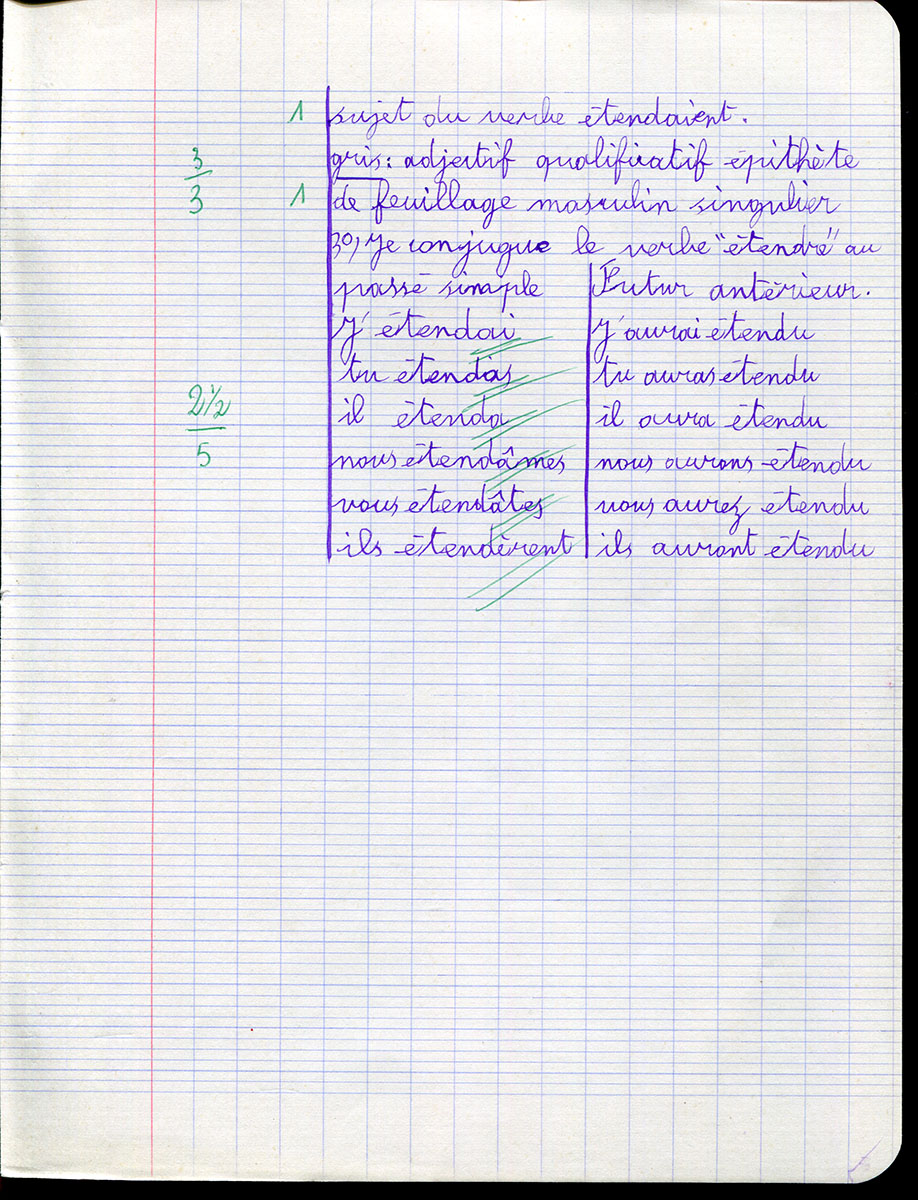 1 sujet du verbe étendaient.
3/3 gris : adjectif qualificatif épithète
1 de feuillage masculin singulier
3°) Je conjugue le verbe "étendre" au
passé simple | Futur antérieur.
J'étendai | J'aurai étendu
tu étendas | tu auras étendu
2½/5 il étenda | il aura étendu
nous étendâmes | nous aurons étendu
vous étendâtes | vous aurez étendu
ils étendèrent | ils auront étendu